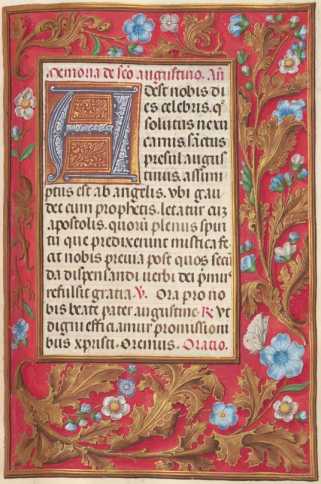 Memoria de sc̄o augustino. An̄
Adest nobis di
es celebris. q°
solutus nexu
carnis. sāctus
presul augus
tinus. assum
ptus est ab angelis. vbi gau
det cum prophetis. letatur cūz
apostolis. quorū plenus spiri
tū que predixerunt mistica fe
cit nobis preuia post quos secū
da dispensandi uerbi dei p̄mus
refulsit gratia. V. Ora pro no
bis beate pater augustine. R. Vt
digni efficiamur promissioni
bus xpristi. Oremus. Oratio.